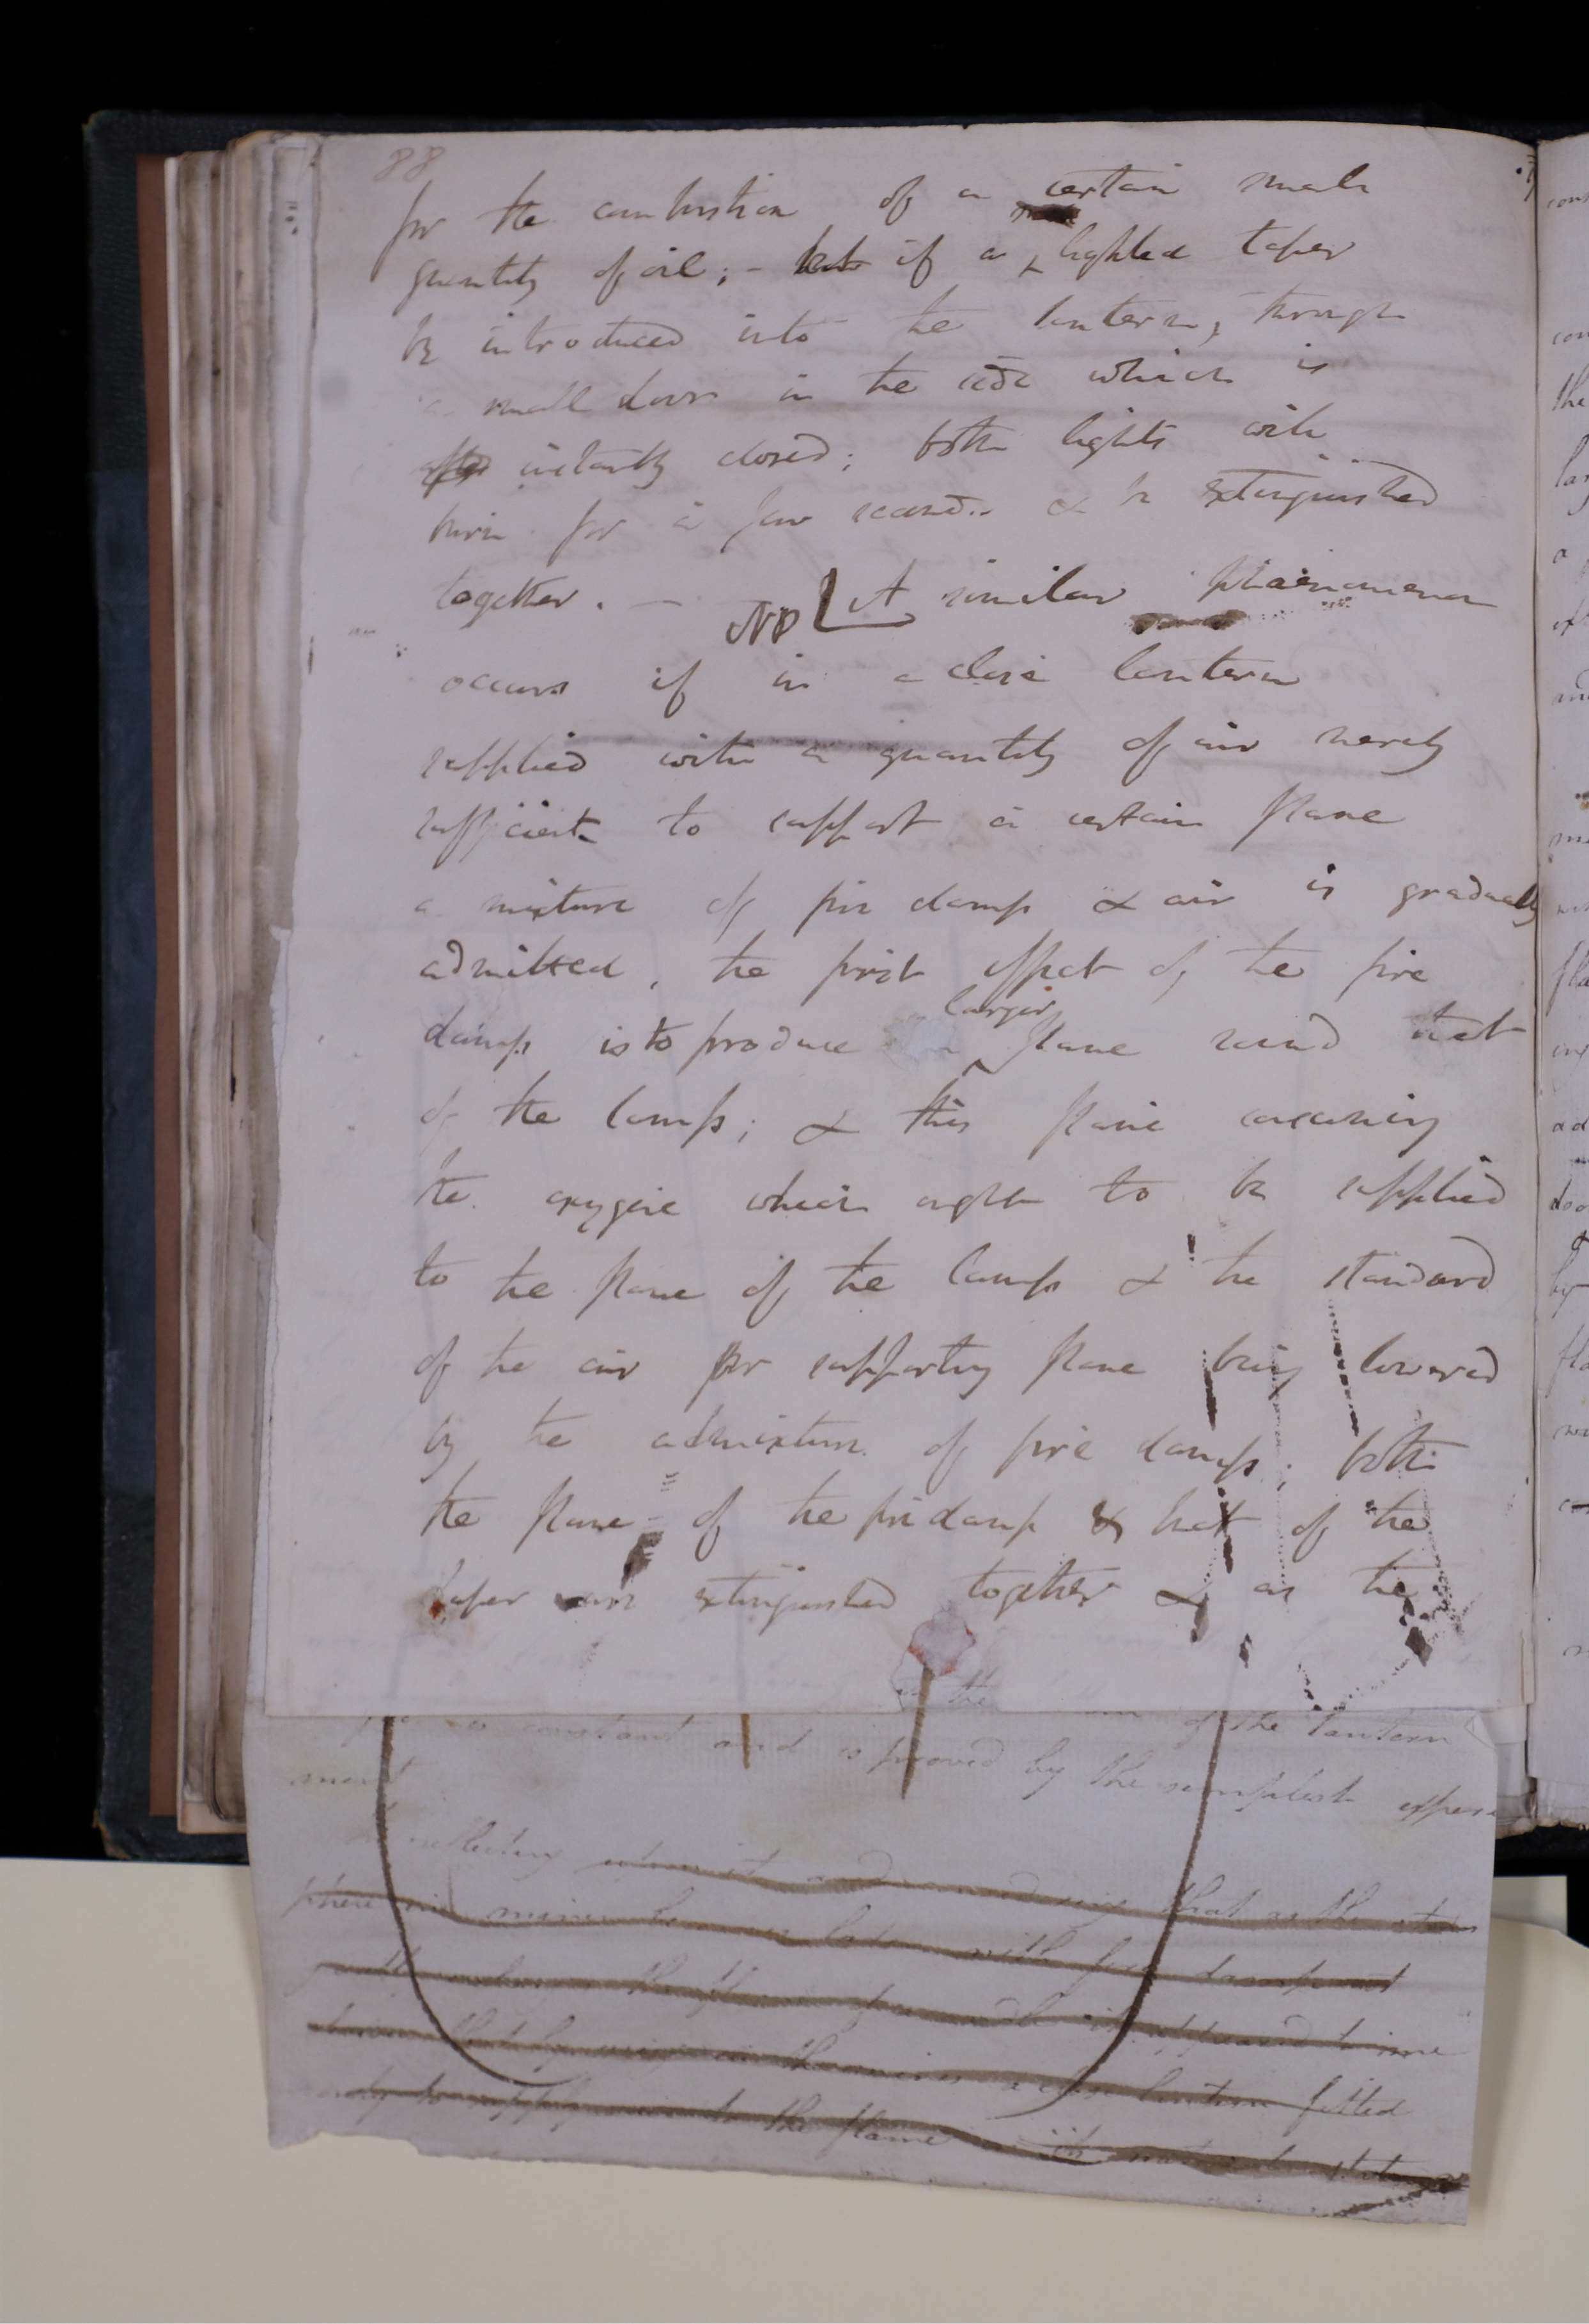 88
for the combustion of a certain small
quantity of oil; - but if a lighted taper
be introduced into the lantern, through
a small door in the side which is
instantly closed; both lights will
burn for a few seconds & be extinguished
together. — NP A similar phaenomenon
occurs if in a close lantern
supplied with a quantity of air merely
sufficient to support a certain flame
a mixture of fire damp & air is gradually
admitted, the first effect of the fire
larger
damp is to produce a flame round that
of the lamp; & this flame consuming
the oxygene which ought to be supplied
to the flame of the lamp & the standard
of the air for supporting flame being lowered
by the admixture of fire damp; both
the flame of the fire damp & that of the
taper are extinguished together & as the
the of the lantern
constant and is proved by the simplest experi
ment
reflecting that as the
mines with fire damp
the it appeared to me
that by using in the mines a close lantern fitted
only to supply the flame in its